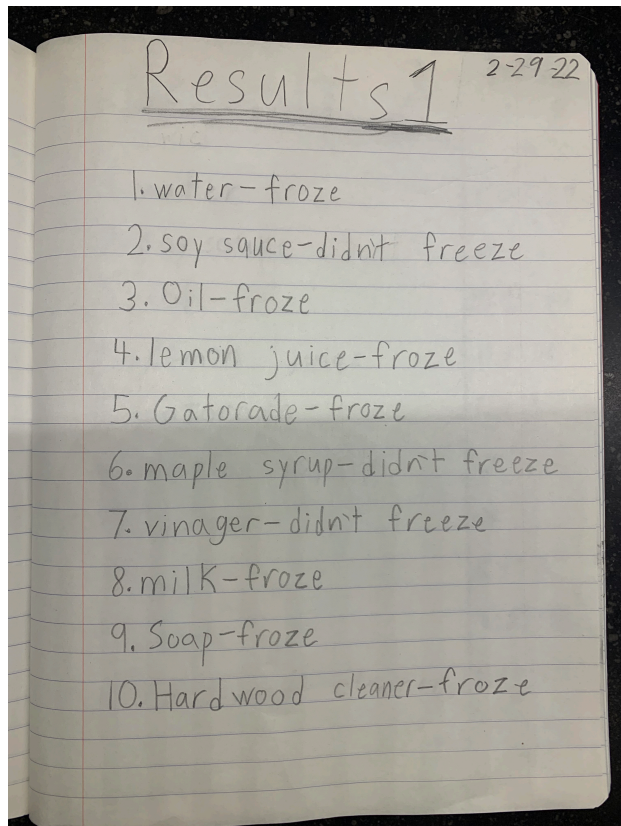 Results 1
2-29-22
1. water-froze
2. soy sauce-didn't freeze
3. Oil-froze
4. lemon juice-froze
5. Gatorade-froze
6. maple syrup-didn't freeze
7. vinager-didn't freeze
8. milk-froze
9. Soap-froze
10. Hardwood cleaner-froze